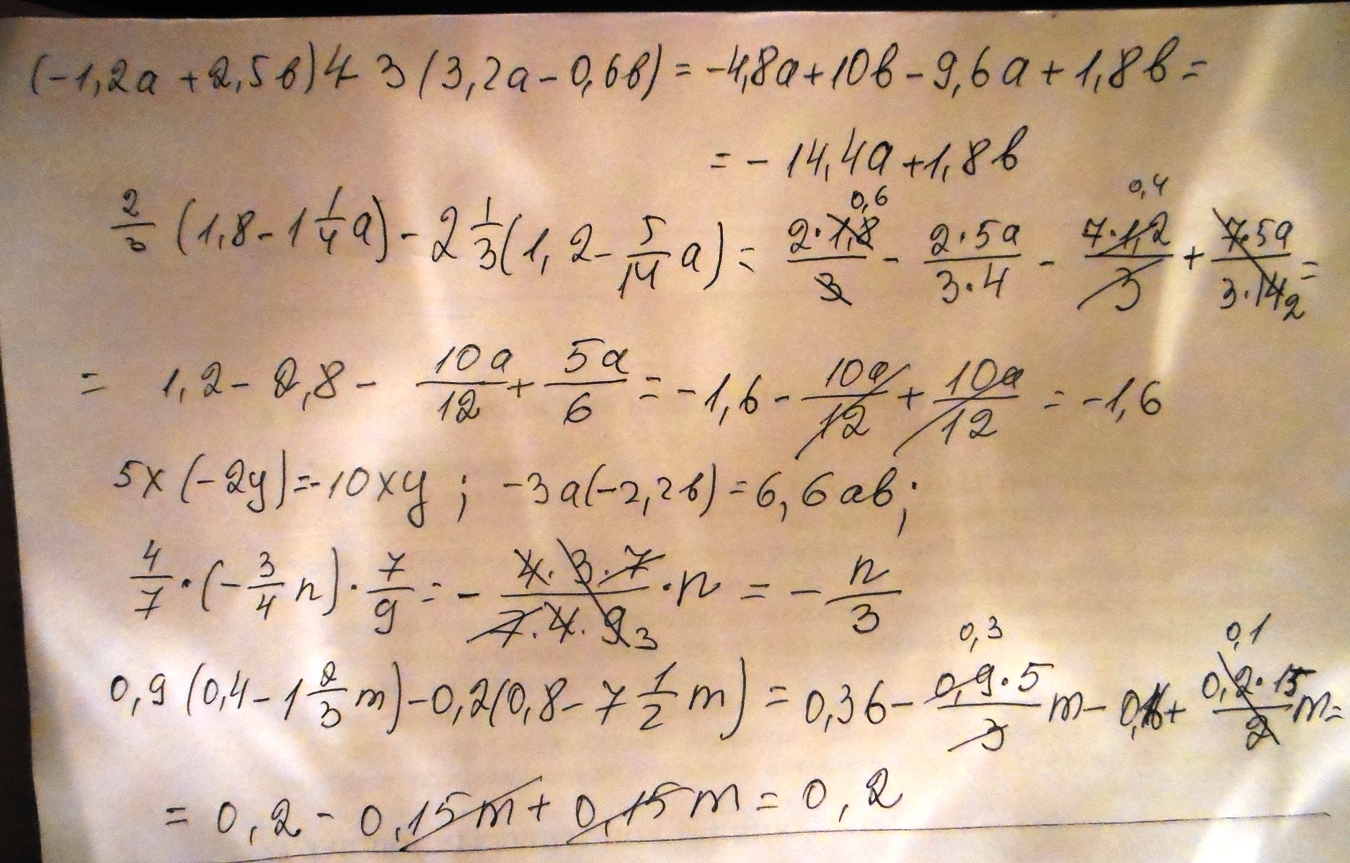 (-1,2a + 2,5в)4 - 3(3,2a - 0,6в) = -4,8a + 10в - 9,6a + 1,8в =
= - 14,4a + 1,8в
2/3 (1,8 - 1 1/4 a) - 2 1/3 (1,2 - 5/14 a) = 2·1,8/3 - 2·5a/3·4 - 7·1,2/3 + 7·5a/3·14 =
0,6 0,4 2
= 1,2 - 2,8 - 10a/12 + 5a/6 = -1,6 - 10a/12 + 10a/12 = -1,6
5x(-2y) = -10xy ; -3a(-2,2в) = 6,6aв;
4/7 · (-3/4 n) · 7/9 = - 4·3·7/7·4·9 3 · n = - n/3
0,3 0,1
0,9(0,4 - 1 2/3 m) - 0,2(0,8 - 7 1/2 m) = 0,36 - 0,9·5/3 m - 0,16 + 0,2·15/2 m =
= 0,2 - 0,15m + 0,15m = 0,2